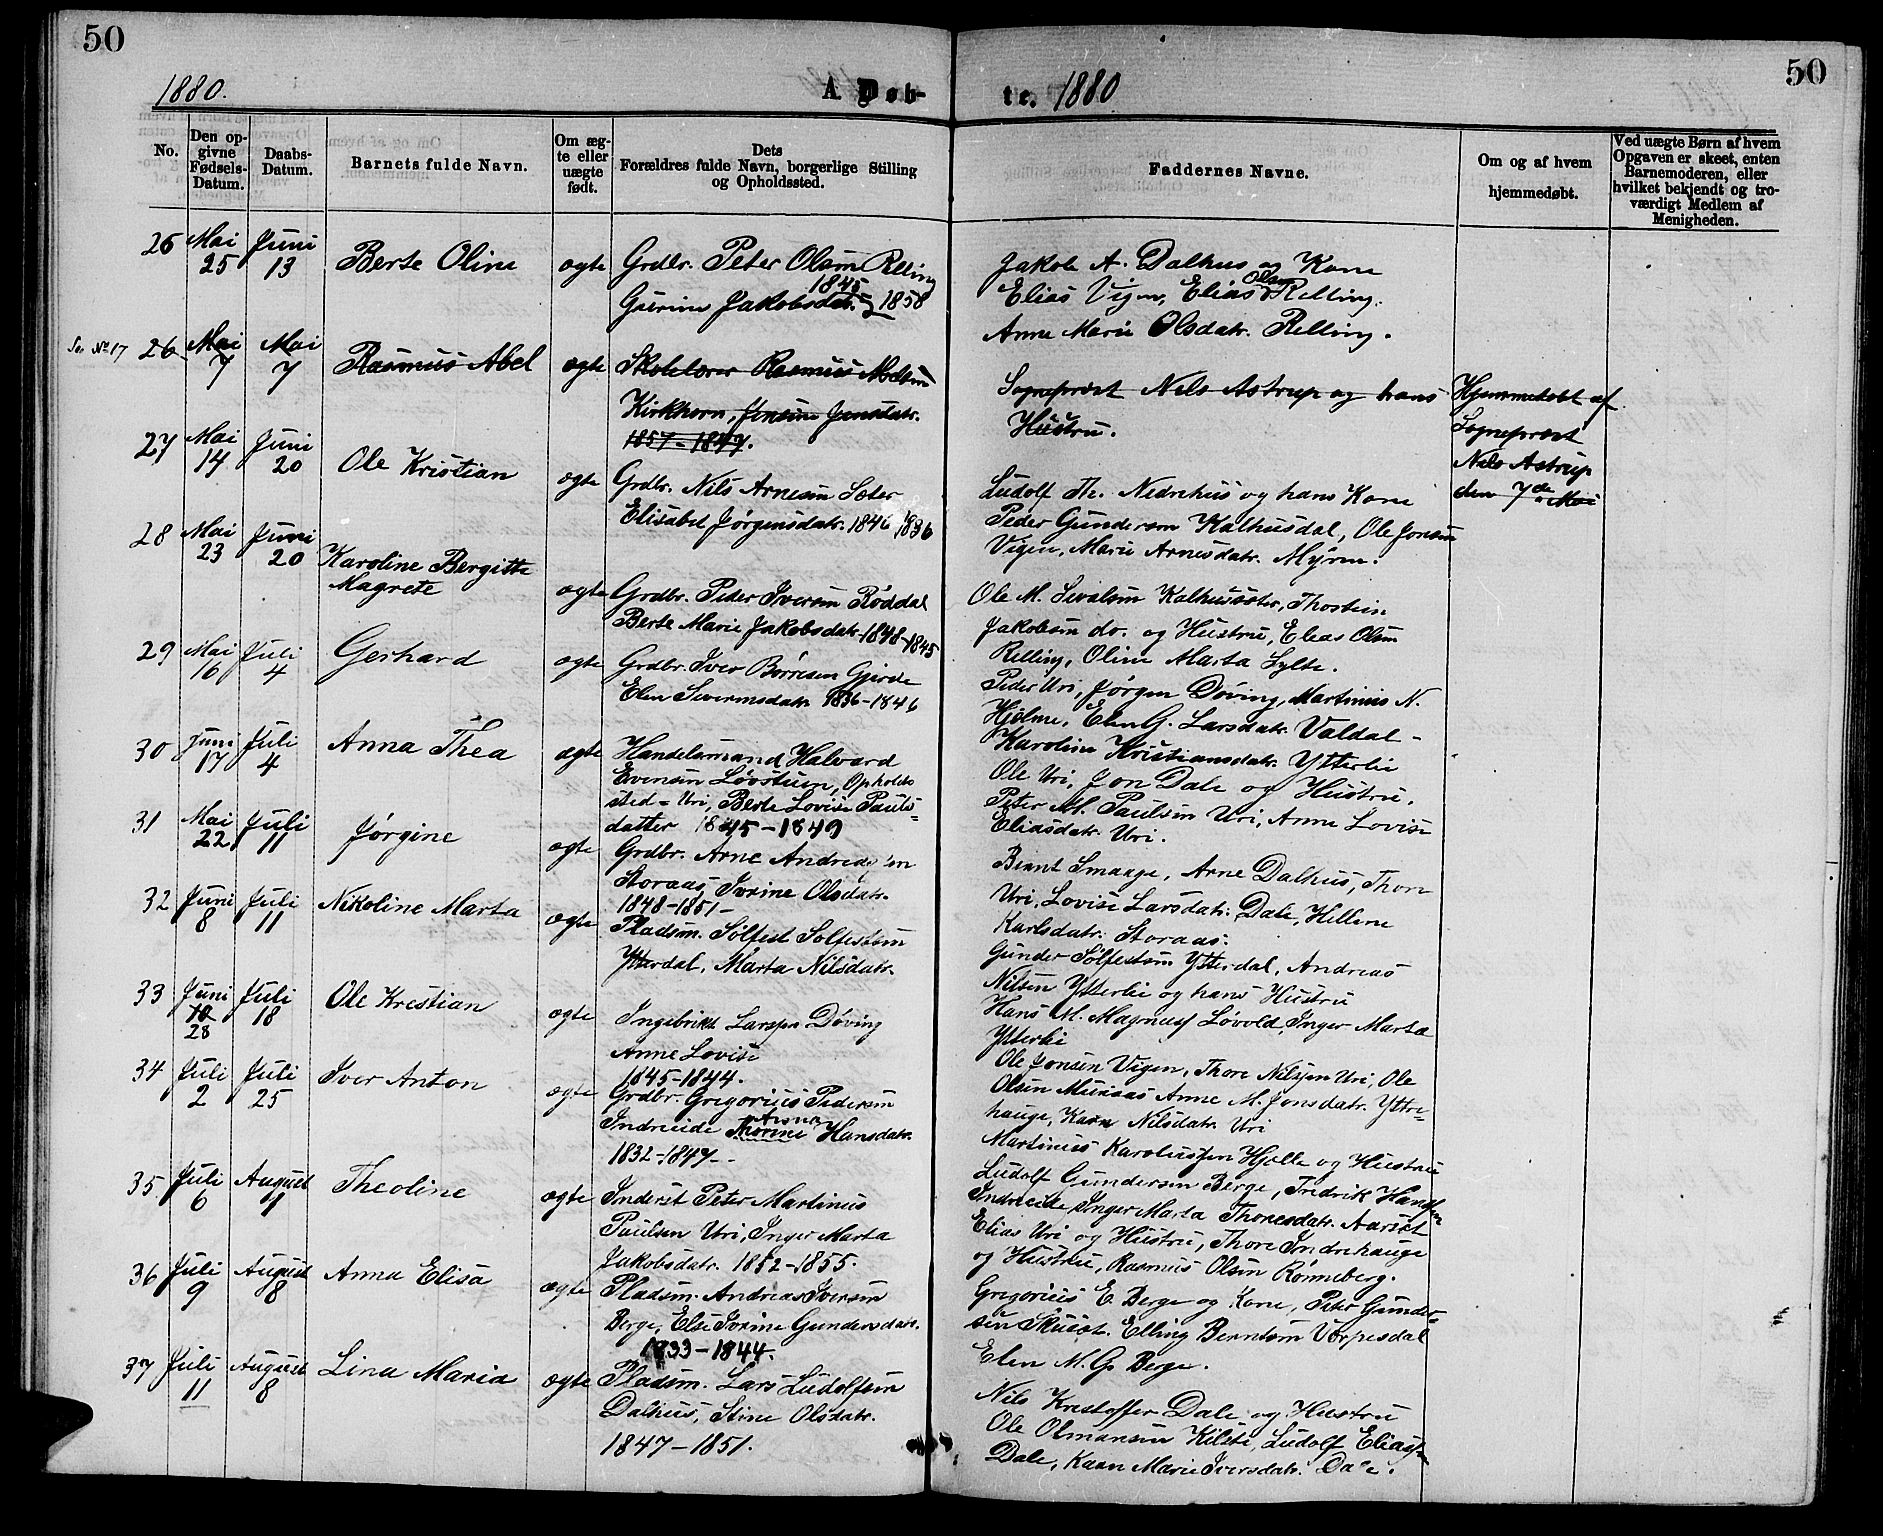 50
50
1880.
A. Døb-
te. 1880
No.
Den opgivne Fødsels-Datum.
Daabs-Datum.
Barnets fulde Navn.
Om ægte eller uægte født.
Dets Forældres fulde Navn, borgerlige Stilling og Opholdssted.
Faddernes Navne.
Om og af hvem hjemmedøbt.
Ved uægte Børn af hvem Opgaven er skeet, enten Barnemoderen, eller hvilket bekjendt og troværdigt Medlem af Menigheden.
26 Mai 25 Juni 13 Berte Oline ægte
Grdbr. Peter Olsen Relling
1845
Gurine Jakobsdatr. 1858
Jakob A. Dalhus og Kone
Elias Vigen, Elias Olsen Relling.
Anne Marie Olsdatr. Relling.
Se No 17 26 Mai 7 Mai 7 Rasmus Abel ægte
Skolelærer Rasmus
Kirkhorn, Jensine Jensdatr.
1857-1849.
Sogneprest Nils Astrup og hans
Hustru.
Hjemmedøbt af
Sogneprest
Nils Astrup
den 7de Mai
27 Mai 14 Juni 20 Ole Kristian ægte
Grdbr. Nils Arnesen Sæter
Elisabet Jørgensdatr. 1846 1836
Ludolf Th. Nedrehus og hans Kone
Peder Gundersen Kalhusdal, Ole Jonsen
Vigen, Marie Arnesdatr. Myren.
28 Mai 23 Juni 20 Karoline Bergitte
Magrete ægte
Grdbr. Peder Iversen Røddal
Berte Marie Jakobsdatr. 1848-1845
Ole M. Sivalsen Kalhussæter, Thostein
Jakobsen do. og Hustru, Elias Olsen
Relling, Oline Marta Sylte.
29 Mai 16 Juli 4 Gerhard ægte
Grdbr. Iver Børresen Gjerde
Elen Severinsdatr. 1836-1846
Peder Uri, Jørgen Døving, Martinus N.
Hjelme, Elen G. Larsdatr. Valdal-
Karoline Kristiansdatr. Ytterlie
30 Juni 17 Juli 4 Anna Thea ægte
Handelsmand Halvard
Evensen Løvstuen, Opholds
sted = Uri, Berte Lovise Pauls=
datter 1845-1849
Ole Uri, Jon Dale og Hustru.
Peter M. Paulsen Uri, Anne Lovise
Eliasdatr. Uri.
31 Mai 22 Juli 11 Jørgine ægte
Grdbr. Arne
Storaas, Ivrine Olsdatr.
1848-1851-
Bernt Smaage, Arne Dalhus, Thore
Uri, Lovise Larsdatr. Dale, Hellene
Karlsdatr. Storaas.
32 Juni 8 Juli 11 Nikoline Marta ægte
Pladsm. Sølfest Solfestsen
Ytterdal, Marta Nilsdatr.
Gunder Sølfestsen Ytterdal, Andreas
Nilsen Ytterlie og hans Hustru
Hans M. Magnusf Løvold, Inger Marta
Ytterlie
33 Juni 18 28 Juli 18 Ole Krestian ægte
Ingebrikt Larssen Døving
Anne Lovise
1845-1844.
Ole Jonsen Vigen, Thore Nilssen Uri, Ole
Olsen Muraas Anne M. Jonsdatr. Yttre=
hauge, Karn Nilsdatr. Uri
34 Juli 2 Juli 25 Iver Anton ægte
Grdbr. Gregorius Pedersen
Indreeide Hansdatr.
1832-1847--
Martinus Karolussen Hjelle og Hustru
Ludolf Gundersen Berge, Fredrik Hansen
Indreeide, Inger Marta Thoresdatr. Aarset
35 Juli 6 August 1 Theoline ægte
Inderst Peter Martinus
Paulsen Uri, Inger Marta
Jakobsdatr. 1852-1855.
Elias Uri og Hustru, Thore Indrehauge
og Hustru, Rasmus Olsen Rønneberg.
36 Juli 9 August 8 Anna Elisa ægte
Pladsm. Andreas Iversen
Berge, Else Ivrine Gundersdatr.
1833-1844.
Gregorius E. Berge og Kone, Peter Gunder=
sen Skuset. Elling Berntsen Verpesdal
Elen M. G. Berge.
37 Juli 11 August 8 Lina Maria ægte
Pladsm. Lars Ludolfsen
Dalhus, Stine Olsdatr.
1847-1851.
Nils Krestoffer Dale og Hustru
Ole Olmansen Kilsti, Ludolf Eliassen
Dale, Karn Marie Iversdatr. Dale.